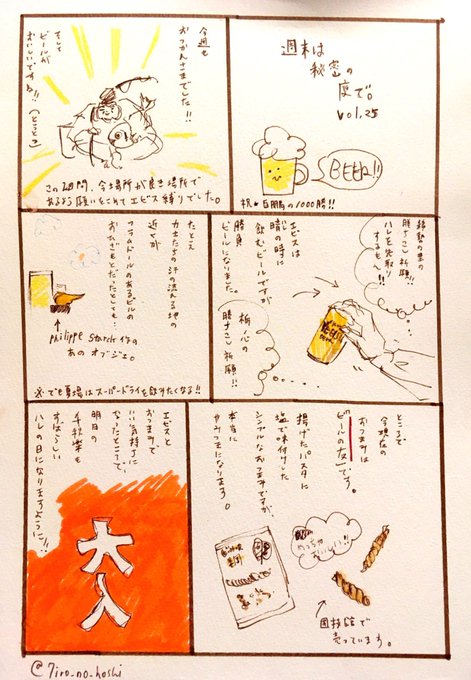 週末は
秘密の
度で。
vol.25
BEER!!
祝★白鵬の1000勝!!
今週も
おつかれさまでした!!
そして
ビールが
おいしいですね!!
この2週間、今場所が良き場所で
あるよう願いをこめてエビス縛りでした。
稀勢の里の
勝ちこし祈願!!
ハレを先取り
エビスは
晴の時に
飲むビールですが
勝負
ビールになりました。
栃ノ心の
勝ちこし祈願!!
たとえ
力士たちの汗の流れる地の
近くが
フラムドールのあるビルの
おひざもとだったとしても…
philippe starck作の
あのオブジェ。
※でも夏場はスーパードライを飲みたくなる!!
ところで
今現在の
おつまみは
「ビールの友」です。
揚げたパスタに
塩で味付けした
シンプルなおつまみですが、
本当に
やみつきになります。
めっちゃ
おいしい!!
国技館で
売っています。
エビスと
おつまみで
いい気持ちに
なったところで、
明日の
千秋楽も
すばらしい
ハレの日になりますように!!
大入
@7iro_no_hoshi